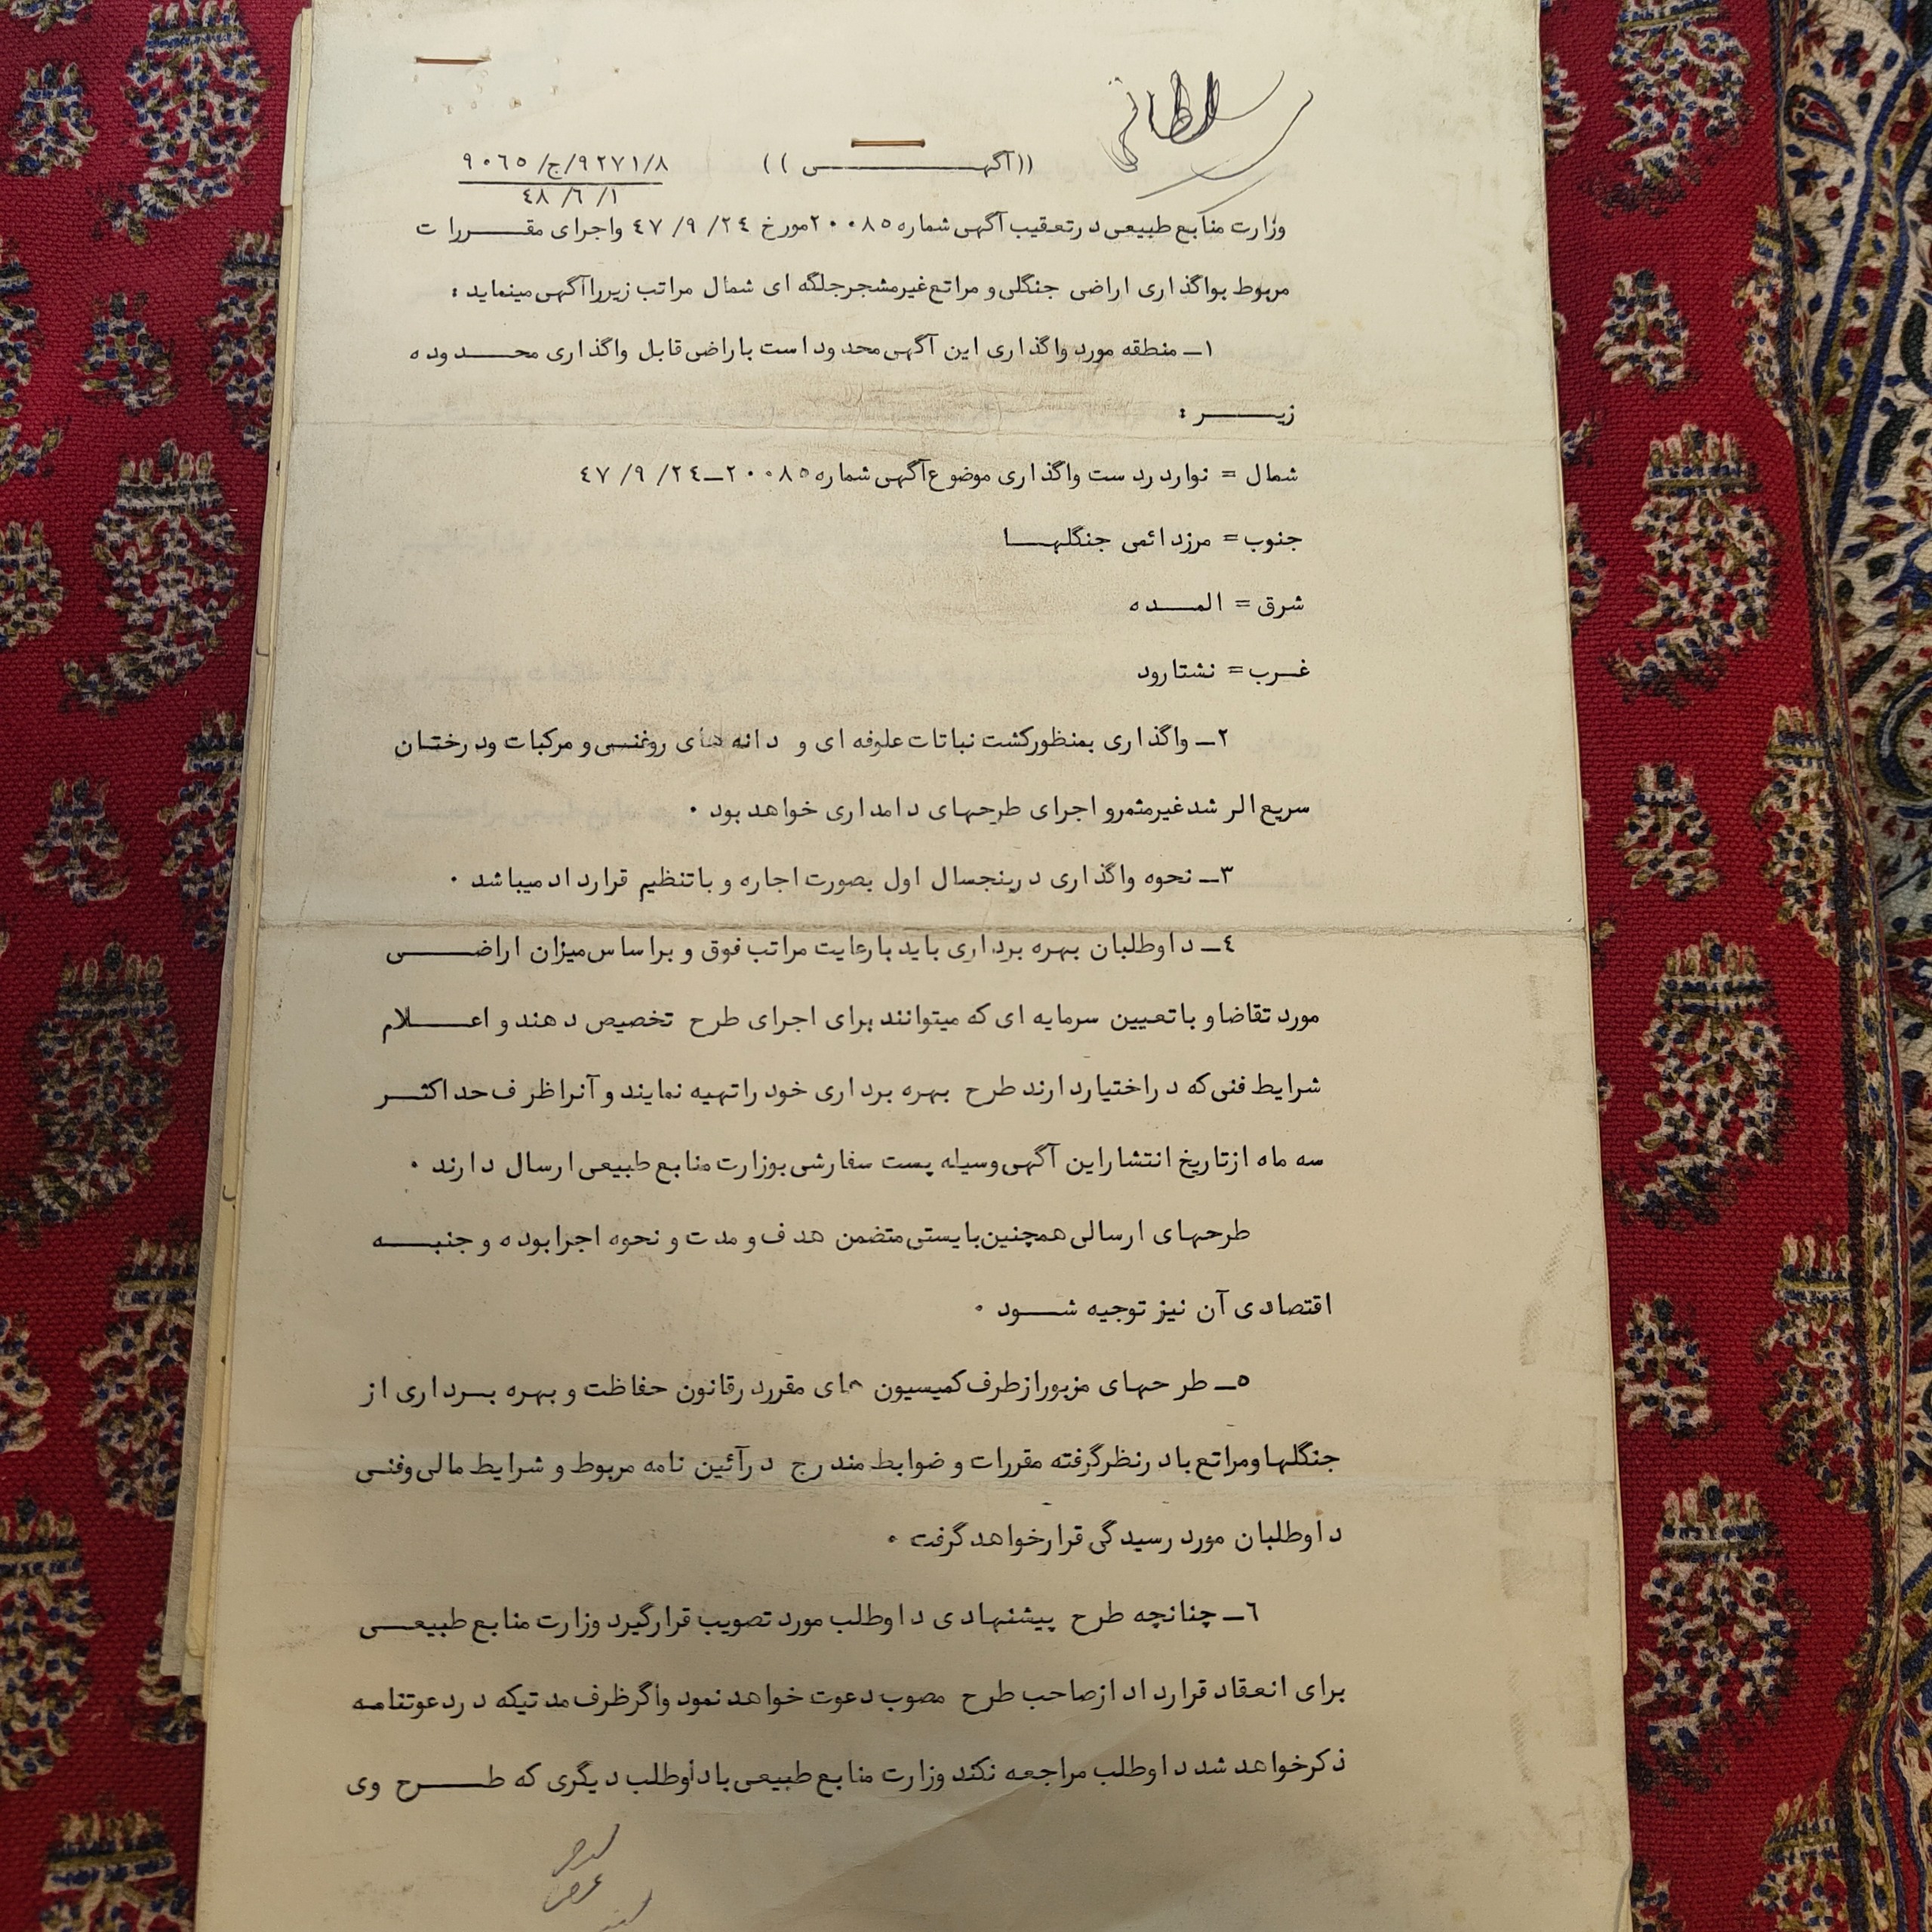 سلطانی
((آگهـــــی))
۹۰٦٥/ج/۹۲۷۱/۸
٤۸/٦/۱
وزارت منابع طبیعی درتعقیب آگهی شماره ۲۰۰۸٥مورخ ٤۷/۹/۲٤ واجرای مقـــررات
مربوط بواگذاری اراضی جنگلی و مراتع غیرمشجرجلگه ای شمال مراتب زیرراآگهی مینماید :
۱ــ منطقه مورد واگذاری این آگهی محدود است باراضی قابل واگذاری محـــدوده
زیـــر :
شمال = نوارد ردست واگذاری موضوع آگهی شماره ۲۰۰۸٥ــ٤۷/۹/۲٤
جنوب = مرزدائمی جنگلهـــا
شرق = المـــده
غــرب = نشتارود
۲ــ واگذاری بمنظورکشت نباتات علوفه ای و دانه های روغنــی و مرکبات ودرختـان
سریع الرشد غیرمثمرو اجرای طرحهای دامداری خواهد بود .
۳ــ نحوه واگذاری درپنجسال اول بصورت اجاره و باتنظیم قرارداد میباشد .
٤ــ داوطلبان بهره برداری باید بارعایت مراتب فوق و براساس میزان اراضـــی
مورد تقاضا و باتعیین سرمایه ای که میتوانند برای اجرای طرح تخصیص دهند و اعـــلام
شرایط فنی که دراختیاردارند طرح بهره برداری خود راتهیه نمایند و آنراظرف حداکثــر
سه ماه ازتاریخ انتشاراین آگهی وسیله پست سفارشی بوزارت منابع طبیعی ارسال دارند .
طرحهای ارسالی همچنین بایستی متضمن هدف و مدت و نحوه اجرابوده و جنبـــه
اقتصادی آن نیز توجیه شـــود .
٥ــ طرحهای مزبورازطرف کمیسیون های مقرردرقانون حفاظت و بهره بــرداری از
جنگلهاومراتع بادرنظرگرفته مقررات و ضوابط مندرج درآئین نامه مربوط و شرایط مالی وفنـی
داوطلبان مورد رسیدگی قرارخواهد گرفت .
٦ــ چنانچه طرح پیشنهادی داوطلب مورد تصویب قرارگیرد وزارت منابع طبیعــی
برای انعقاد قرارداد ازصاحب طرح مصوب دعوت خواهد نمود واگرظرف مدتیکه دردعوتنامـه
ذکرخواهد شد داوطلب مراجعه نکند وزارت منابع طبیعی باداوطلب دیگری که طـــرح وی